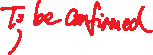 To be confirmed